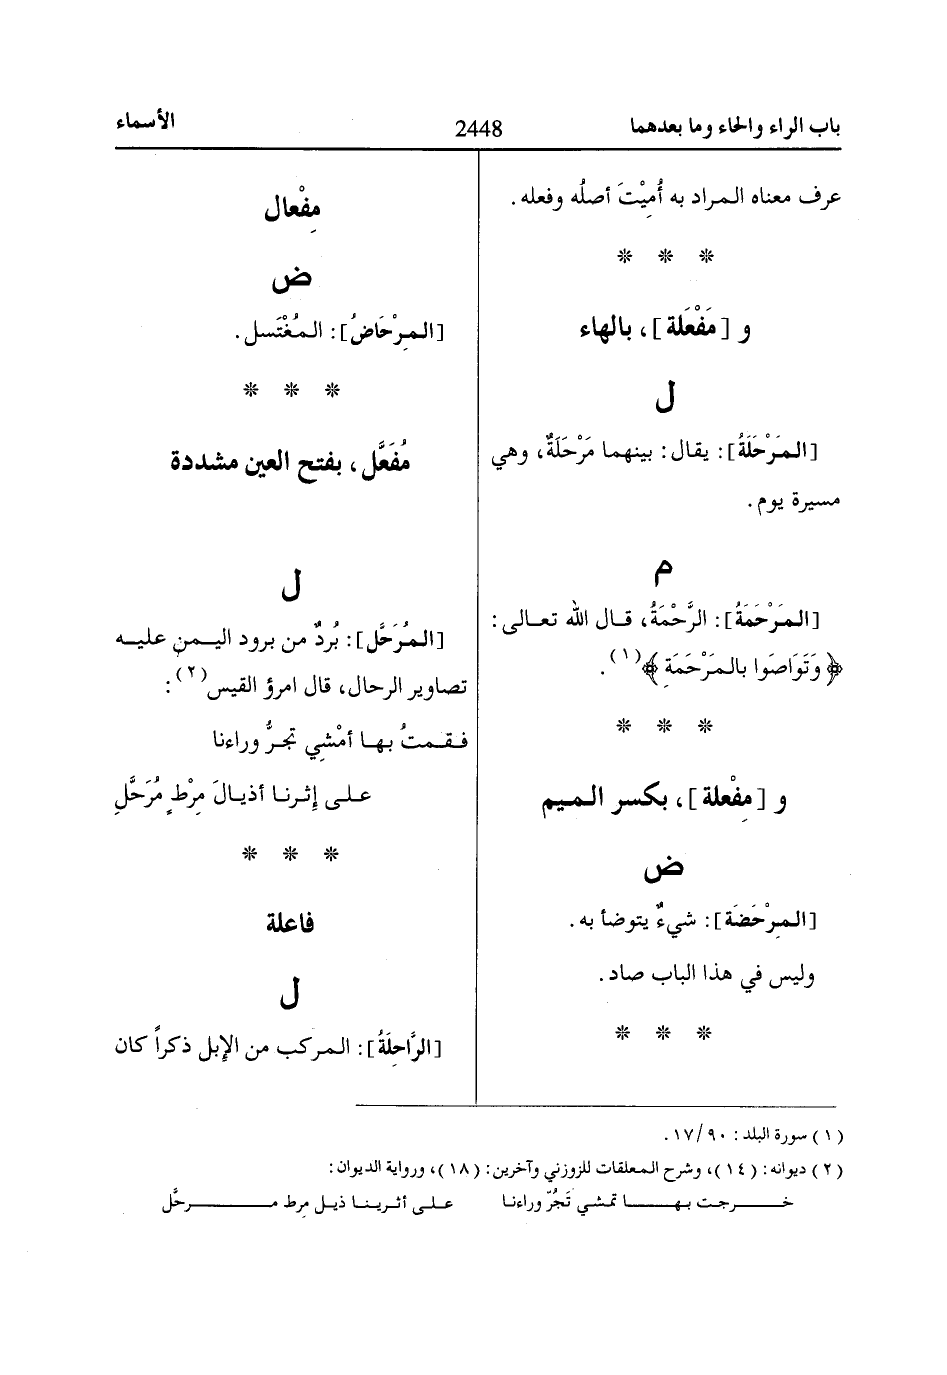 باب الراء والحاء وما بعدهما
2448
الأسماء
عرف معناه المراد به أُمِيْتَ أصلُه وفعله.
* * *
و [مَفْعَلة]، بالهاء
ل
[المَرْحَلَةُ]: يقال: بينهما مَرْحَلَةٌ، وهي
مسيرة يوم.
م
[المَرْحَمَةُ]: الرَّحْمَةُ، قال الله تعالى:
﴿وَتَوَاصَوا بالمَرْحَمَةِ﴾(١).
* * *
و [مِفْعلة]، بكسر الميم
ض
[المِرْحَضَة]: شيءٌ يتوضأ به.
وليس في هذا الباب صاد.
* * *
مِفْعال
ض
[المِرْحَاضُ]: المُغْتَسل.
* * *
مُفَعَّل، بفتح العين مشددة
ل
[المُرَحَّل]: بُردٌ من برود اليمن عليه
تصاوير الرحال، قال امرؤ القيس(٢):
فقمتُ بها أمْشِي تجرُّ وراءنا
على إثرنا أذيالَ مِرْطٍ مُرَحَّلِ
* * *
فاعلة
ل
[الرَّاحِلَةُ]: المركب من الإبل ذكراً كان
(١) سورة البلد: ٩٠/١٧.
(٢) ديوانه: (١٤)، وشرح المعلقات للزوزني وآخرين: (١٨)، ورواية الديوان:
خرجت بها تمشي تَجُرّ وراءنا على أثرينا ذيل مرط مرحَّل